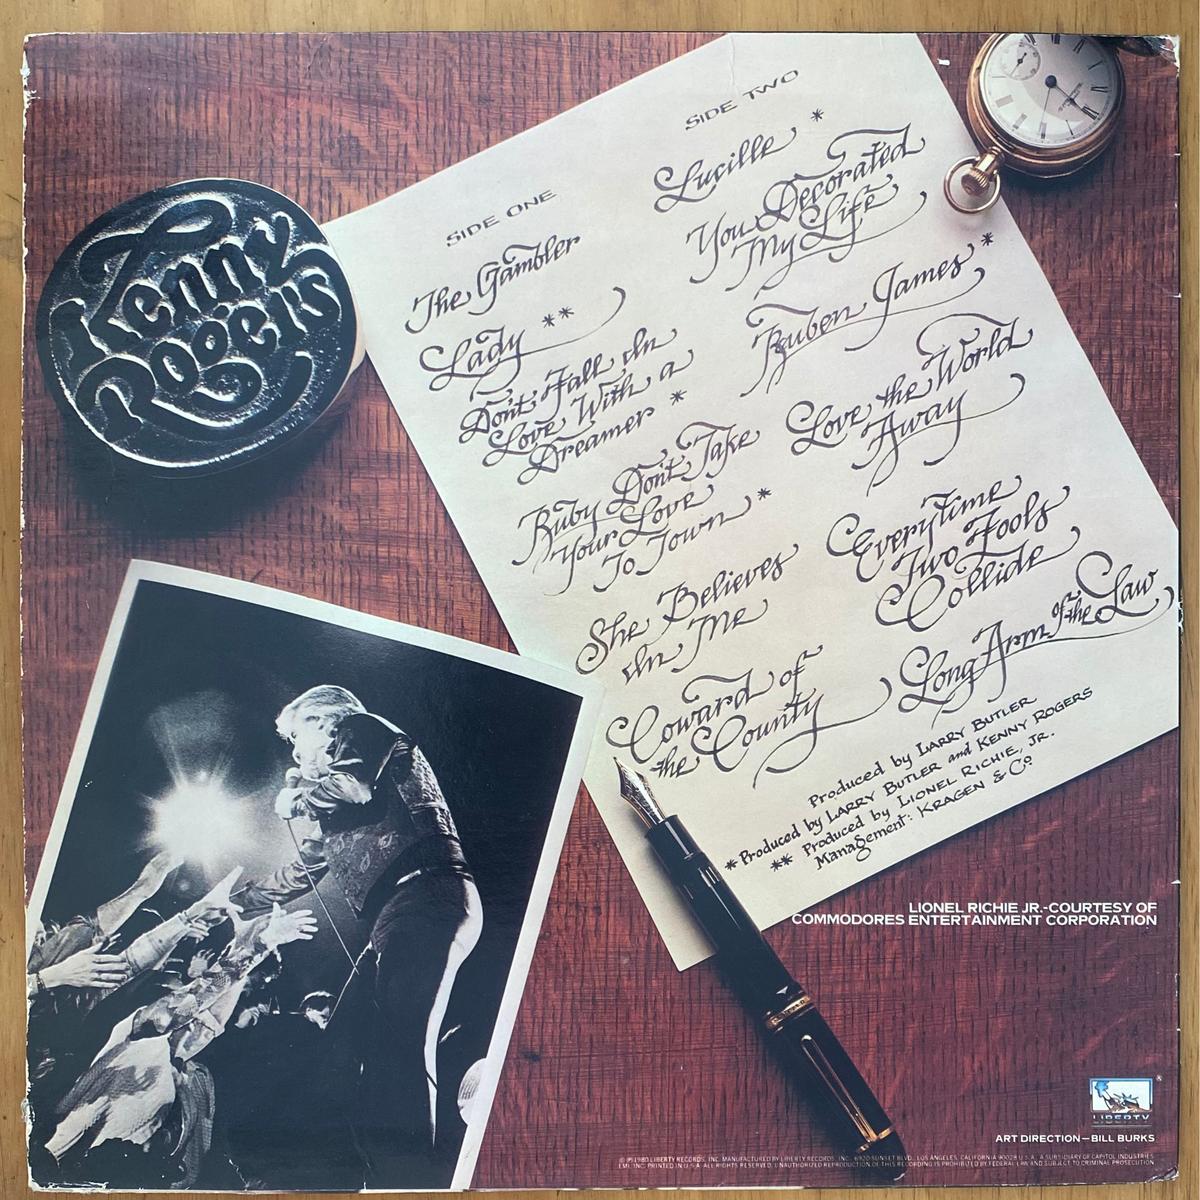 Kenny
Rogers
SIDE ONE
The Gambler
Lady **
Don't Fall In
Love With a
Dreamer *
Ruby Don't Take
Your Love
To Town *
She Believes
In Me
Coward of
the County
SIDE TWO
Lucille *
You Decorated
My Life
Ruben James *
Love the World
Away
Everytime
Two Fools
Collide
Long Arm of the Law
Produced by LARRY BUTLER
* Produced by LARRY BUTLER and KENNY ROGERS
** Produced by LIONEL RICHIE, JR.
Management: KRAGEN & Co
LIONEL RICHIE JR.-COURTESY OF
COMMODORES ENTERTAINMENT CORPORATION
LIBERTY
ART DIRECTION—BILL BURKS
© ℗ 1980 LIBERTY RECORDS, INC. MANUFACTURED BY LIBERTY RECORDS, INC., 6920 SUNSET BLVD., LOS ANGELES, CALIFORNIA 90028 U.S.A. A SUBSIDIARY OF CAPITOL INDUSTRIES
EMI, INC. PRINTED IN U.S.A. ALL RIGHTS RESERVED. UNAUTHORIZED REPRODUCTION OF THIS RECORDING IS PROHIBITED BY FEDERAL LAW AND SUBJECT TO CRIMINAL PROSECUTION